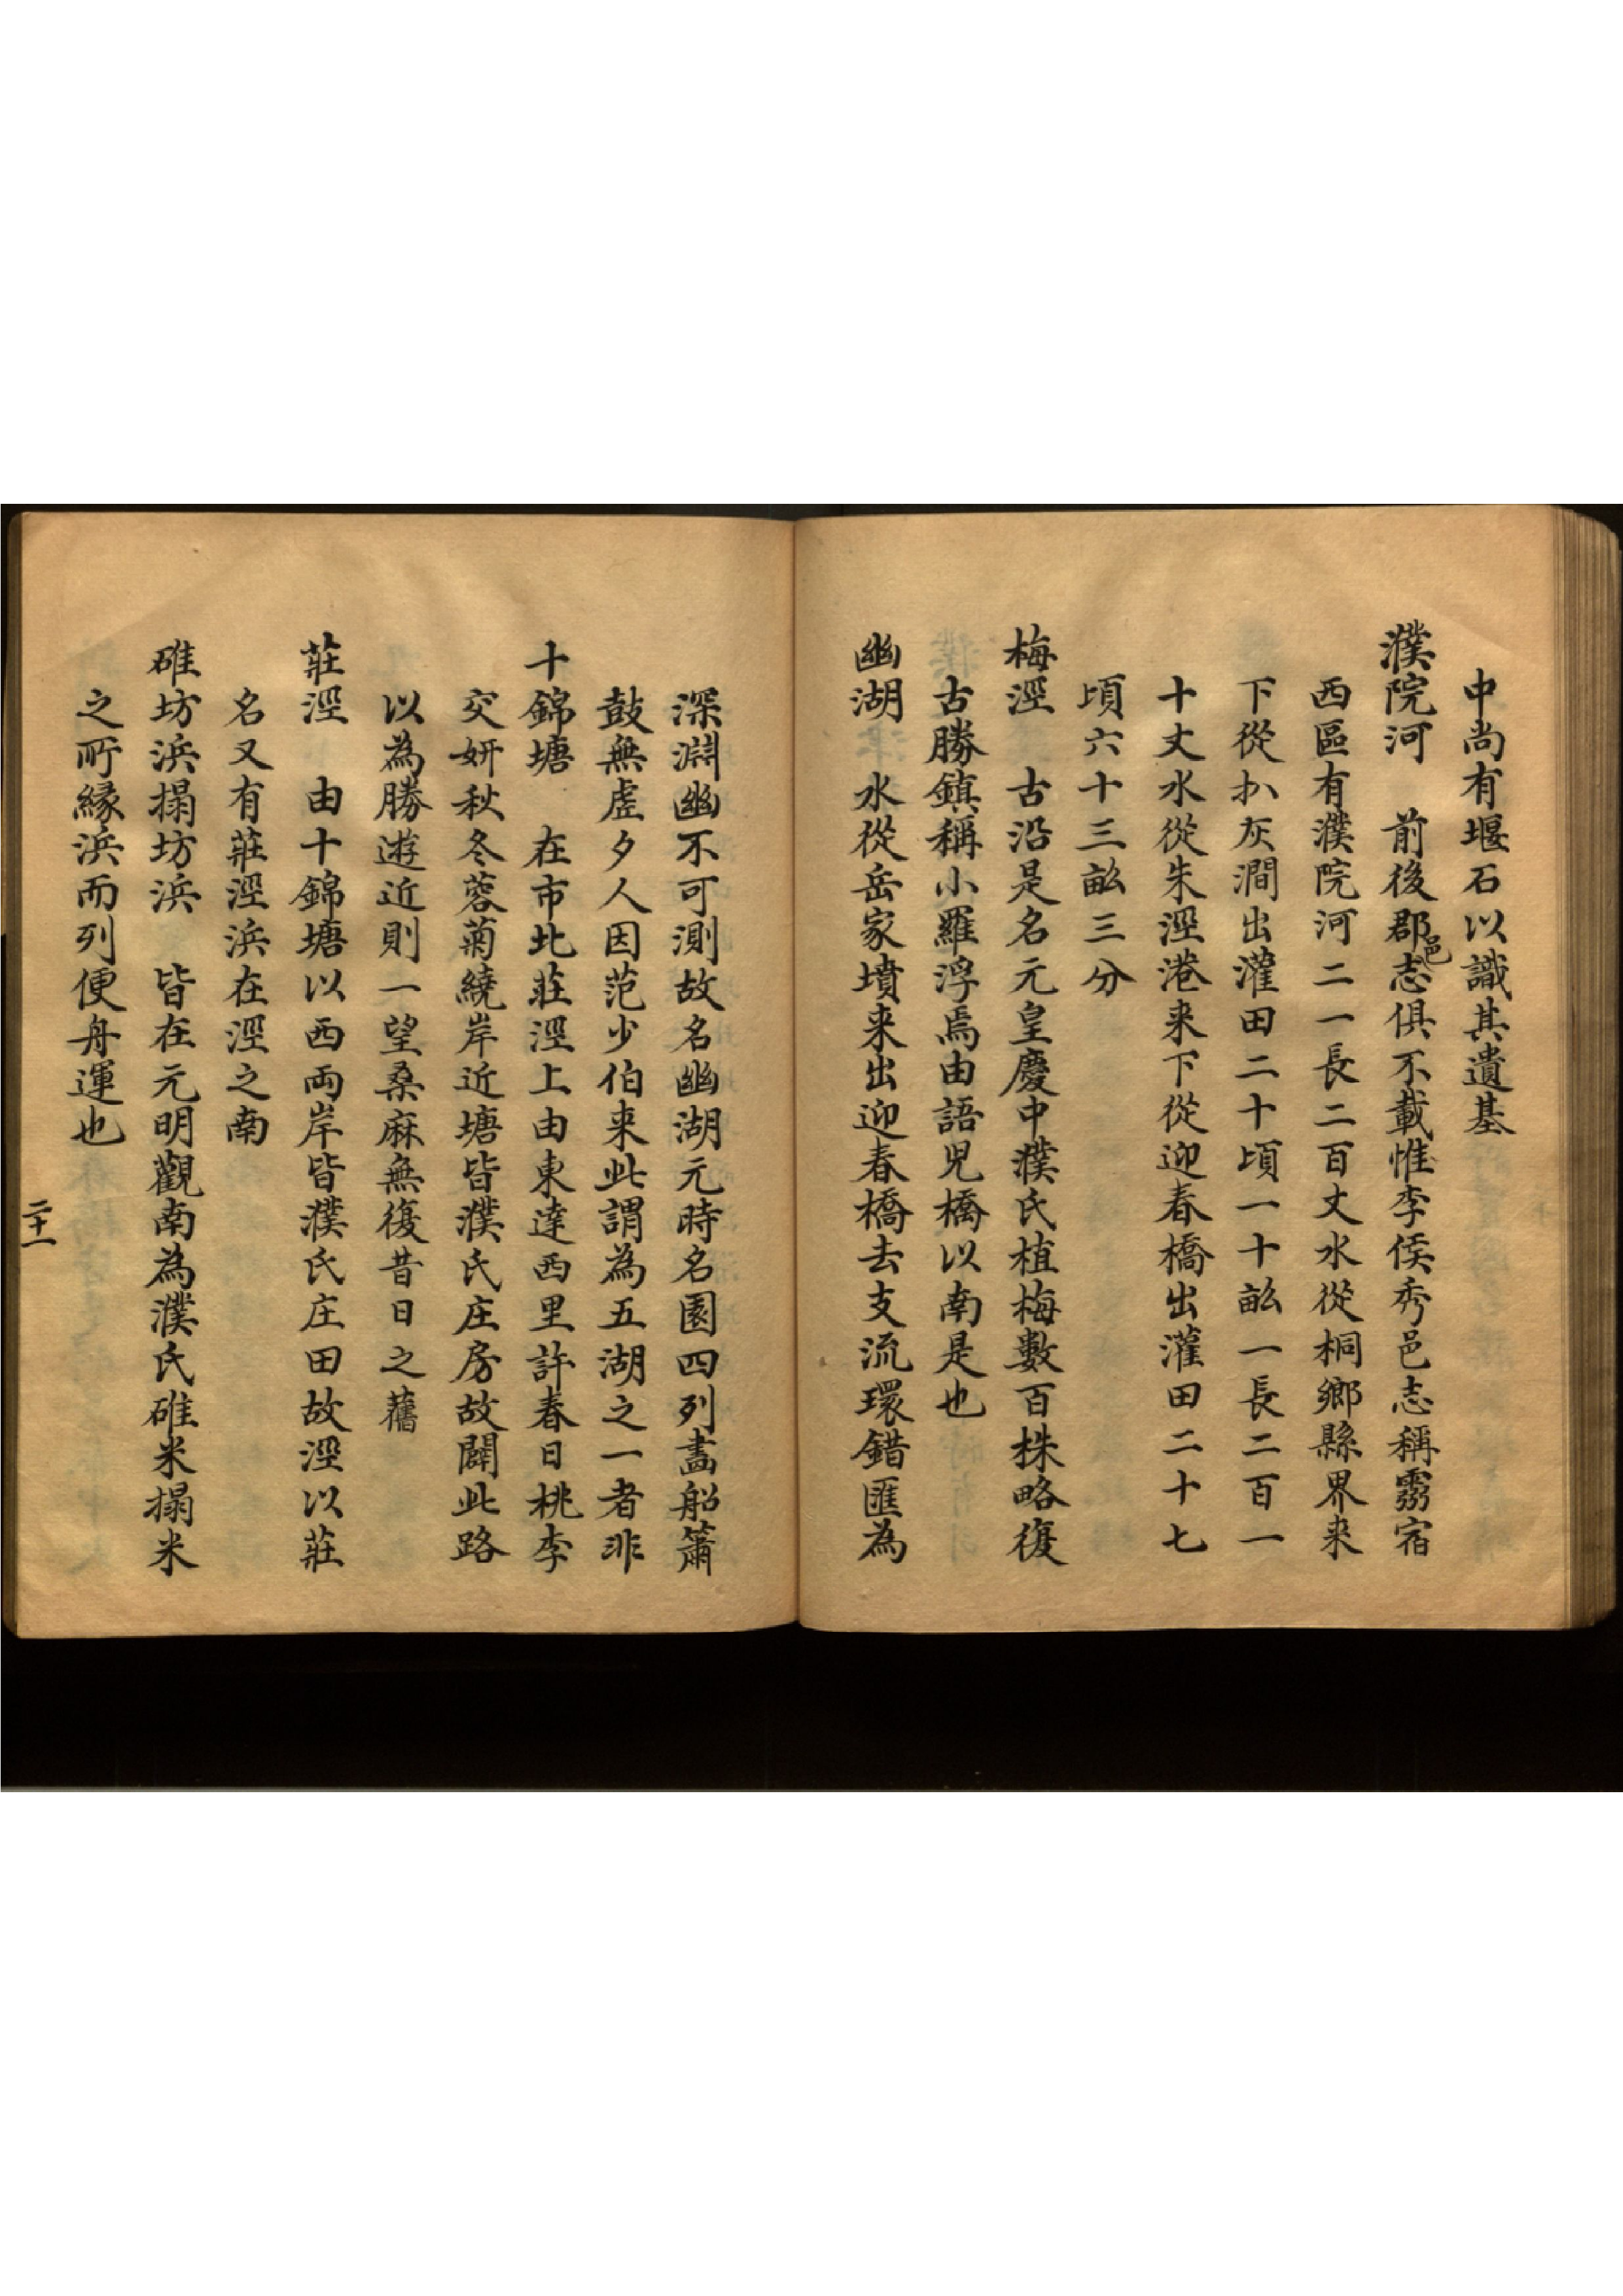 中尚有堰石以識其遺基
濮院河　前後郡邑志俱不載惟李侯秀邑志稱霛宿
西區有濮院河二一長二百丈水從桐鄉縣界来
下從扒灰澗出灌田二十頃一十畝一長二百一
十丈水從朱涇港来下從迎春橋出灌田二十七
頃六十三畝三分
梅涇　古沿是名元皇慶中濮氏植梅數百株略復
古勝鎮稱小羅浮焉由語児橋以南是也
幽湖　水從岳家墳来出迎春橋去支流環錯匯為
深淵幽不可測故名幽湖元時名園四列畵船簫
鼓無虗夕人因范少伯来此謂為五湖之一者非
十錦塘　在市北莊涇上由東達西里許春日桃李
交妍秋冬蓉菊繞岸近塘皆濮氏庄房故闢此路
以為勝遊近則一望桑麻無復昔日之舊
莊涇　由十錦塘以西両岸皆濮氏庄田故涇以莊
名又有莊涇浜在涇之南
碓坊浜搨坊浜　皆在元明觀南為濮氏碓米搨米
之所縁浜而列便舟運也
二十一